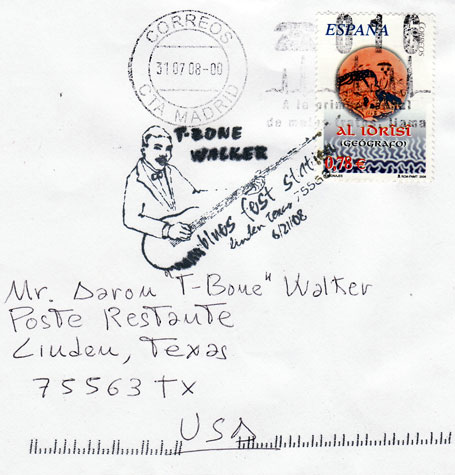 CORREOS
31 07 08-00
CTA MADRID
ESPAÑA
CORREOS
AL IDRISI
(GEÓGRAFO)
0,78 €
T-BONE
WALKER
blues fest station
Linden Texas 7556
6/21/08
Mr. Daron "T-Bone" Walker
Poste Restante
Linden, Texas
75563 TX
USA